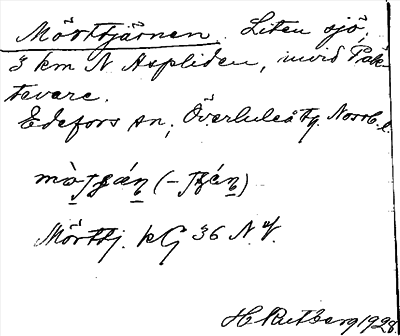 Mörttjärnen. Liten sjö,
3 km N Aspliden, invid Pak-
tevare.
Edefors sn, Överluleå tg. Norrb. l.
Mörttj. kG 36 N.V.
H Rutberg 1928.